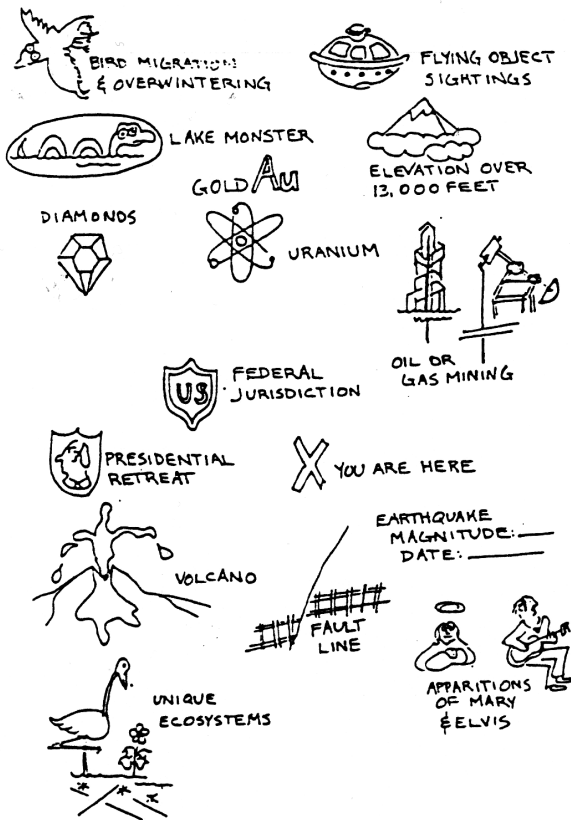 BIRD MIGRATION
& OVERWINTERING
FLYING OBJECT
SIGHTINGS
LAKE MONSTER
ELEVATION OVER
13,000 FEET
GOLD Au
DIAMONDS
URANIUM
OIL OR
GAS MINING
US
FEDERAL
JURISDICTION
PRESIDENTIAL
RETREAT
X YOU ARE HERE
EARTHQUAKE
MAGNITUDE:
DATE:
VOLCANO
FAULT
LINE
APPARITIONS
OF MARY
& ELVIS
UNIQUE
ECOSYSTEMS